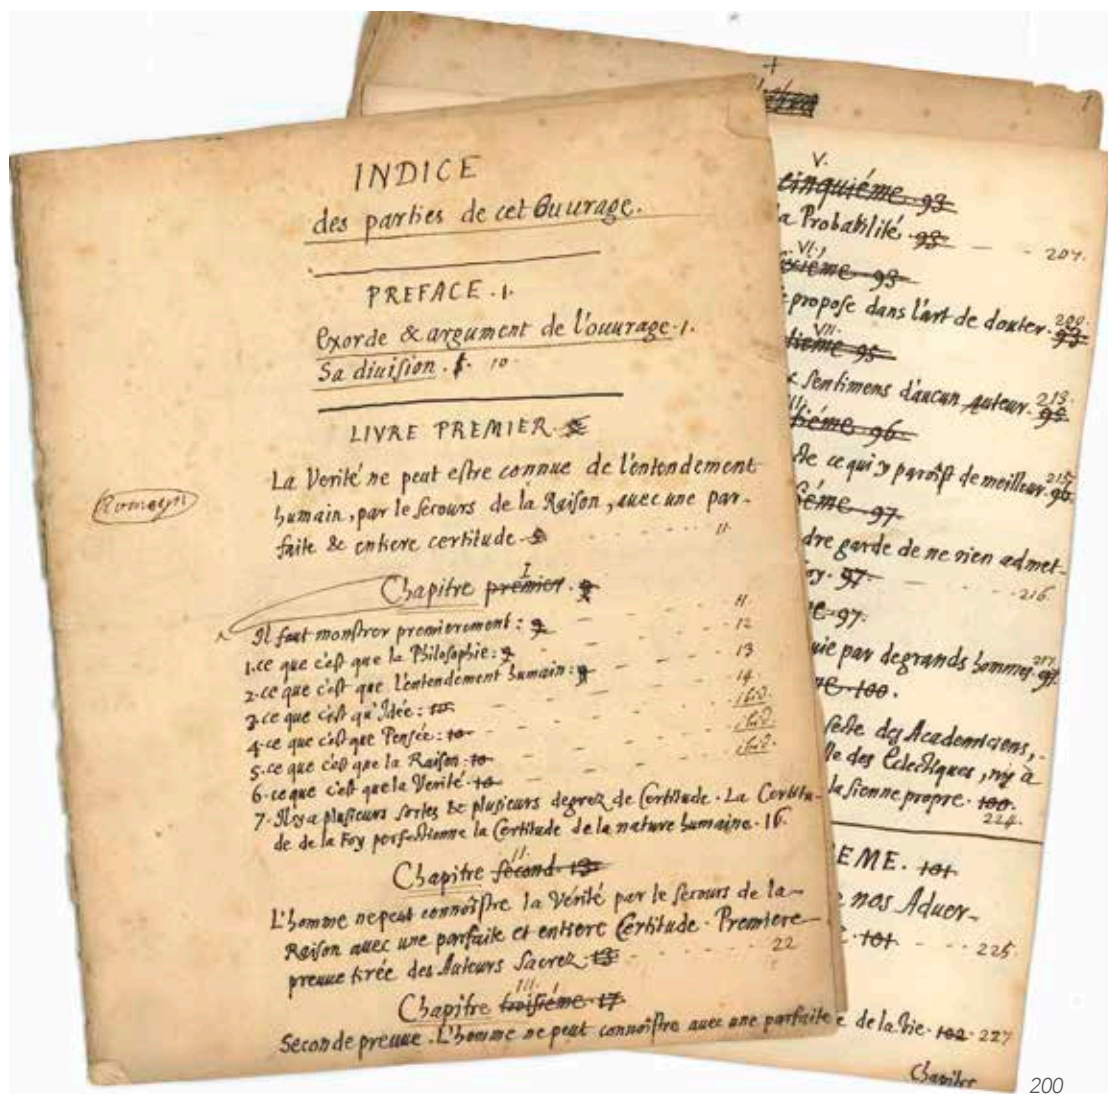 INDICE
des parties de cet Ouurage.
PREFACE. 1.
Exorde & argument de l'ouurage. 1.
Sa diuision. 10.
LIVRE PREMIER.
Romeyn
La Verité ne peut estre connue de l'entendement
humain, par le secours de la Raison, auec une par-
faite & entiere certitude. 11
I
Chapitre premier. 9
Il faut monstrer premierement: 9 11
1. ce que c'est que la Philosophie: 9 12
2. ce que c'est que l'entendement humain: 9 13
3. ce que c'est qu'Idée: 10 14
4. ce que c'est que Pensée: 10 ibid.
5. ce que c'est que la Raison: 10 ibid.
6. ce que c'est que la Verité. 10 ibid.
7. Il y a plusieurs sortes & plusieurs degrez de Certitude. La Certitu-
de de la Foy perfectionne la Certitude de la nature humaine. 16.
II
Chapitre second. 13
L'homme ne peut connoistre la Vérité par le secours de la
Raison auec une parfaite et entiere Certitude. Premiere
preuue tirée des Auteurs Sacrez. 13 22
III.
Chapitre troisiéme. 17
Seconde preuue. L'homme ne peut connoistre auec une parfaite
V.
cinquiéme. 93
la Probabilité. 93 207.
VI.
sixiéme. 93
propose dans l'art de douter. 93 208.
VII.
tiéme 95
sentimens d'aucun Auteur. 95 213.
tiéme. 96
ce qui y paroist de meilleur. 96 215.
iéme. 97
dre garde de ne rien admet-
oy. 97. 216.
e. 97.
uie par de grands hommes. 97 217.
ne. 100.
secte des Academiciens,
le des Eclectiques, n'y à
la sienne propre. 100. 224.
EME. 101
nos Aduer-
101 225.
e de la vie. 102 227
Chapitre
200